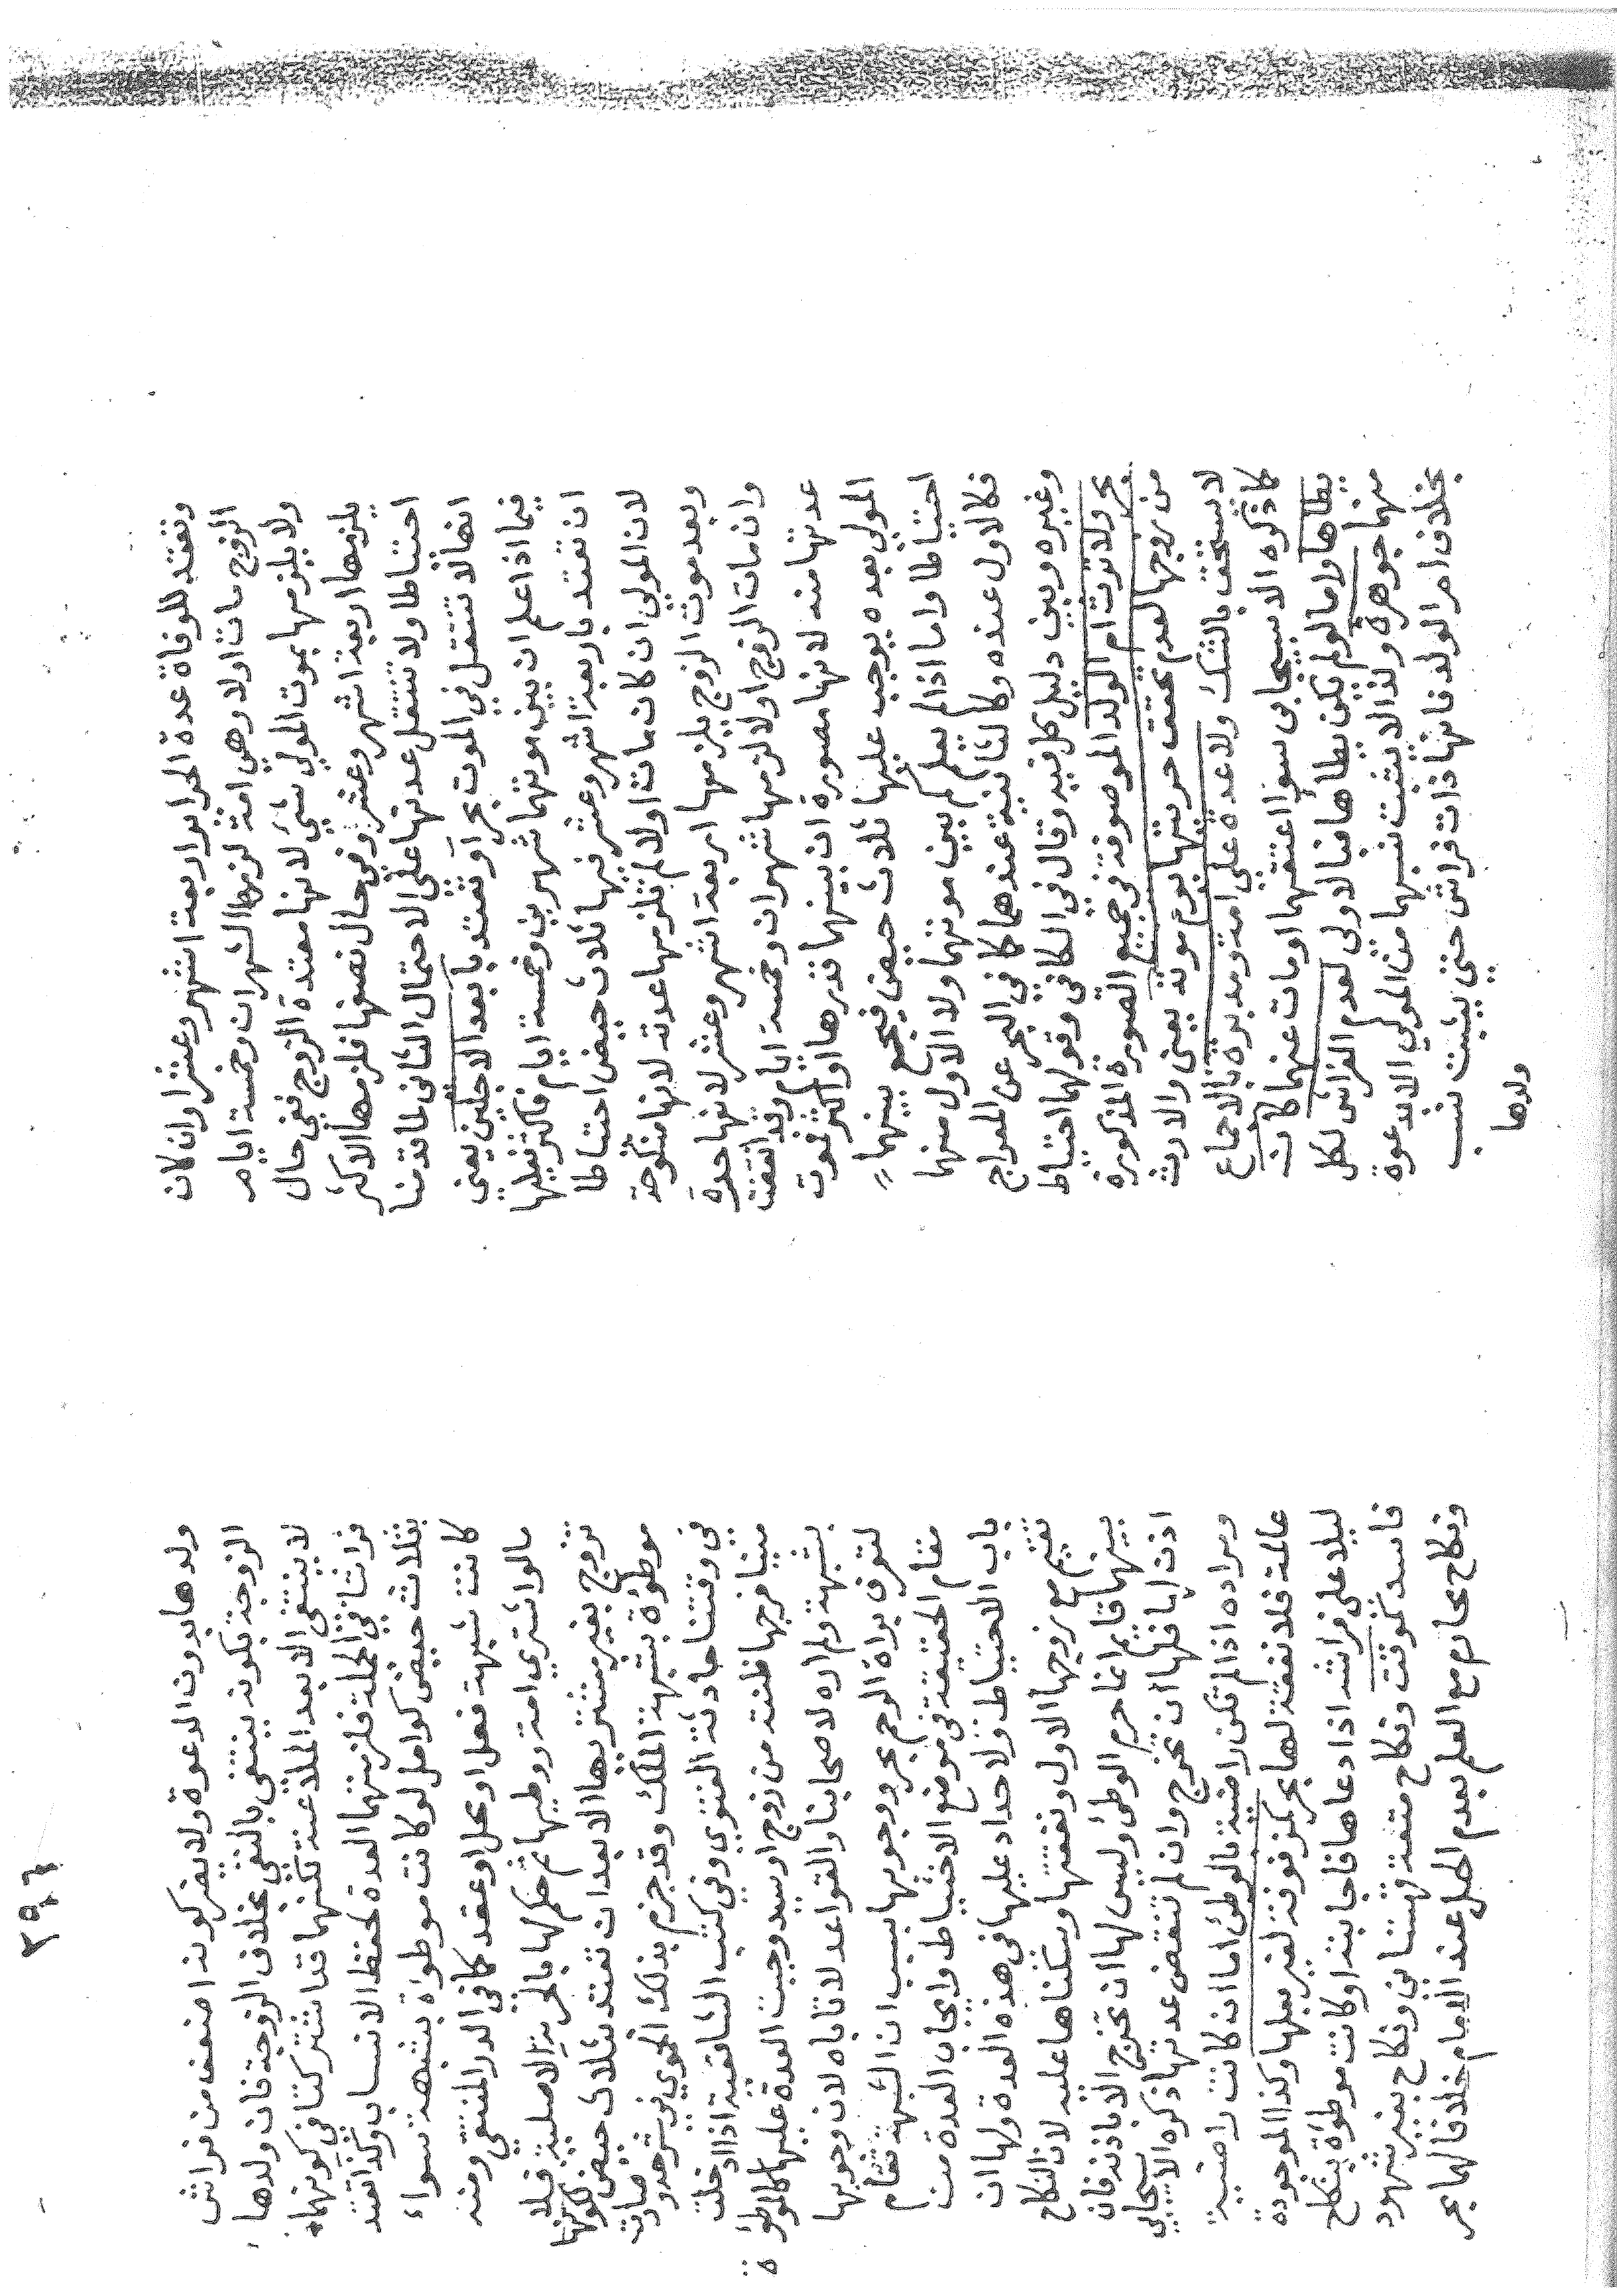 وتعتد للوفاة عدة الحراير اربعة اشهر وعشرا وان كان
الزوج مات اولا وهي امة لزمها الشهران وخمسة ايام
ولا يلزمها بموت المولى شئ لانها معتدة الزوج ففي حال
يلزمها اربعة اشهر وعشر وفي حال نصفها فلزمها الاكثر
احتياطا ولا تنتقل عدتها على الاحتمال الثاني لما قدمنا
انها لا تنتقل في الموت بحر او تعتد بابعد الاجلين يعني
فيما اذا علم ان بين موتهما شهرين وخمسة ايام فاكثر فعليها
ان تعتد باربعة اشهر وعشر فيها ثلاث حيض احتياطا
لان المولى ان كان مات اولا لم تلزمها عدته لانها منكوحة
وبعد موت الزوج يلزمها اربعة اشهر وعشر لانها حرة
وان مات الزوج اولا لزمها شهران وخمسة ايام وقد انقضت
عدتها منه لانها مصورة ان بينهما قدرها او اكثر فموت
المولى بعده يوجب عليها ثلاث حيض فيجمع بينهما
احتياطا واما اذا لم يعلم كم بين موتهما ولا الاول منهما
فكالاول عنده وكالثانية عندهما كما في البحر عن المعراج
وغيره وبين دليل كل فيه وقال في الكافي وقولهما احتياط
بحر ولا ترث ام الولد الموصوفة في جميع الصورة المذكورة
من زوجها لعدم تحقق حريتها يوم موته يعني والارث
لا يستحق بالشك ولا عدة على امة ومدبرة بالاجماع
كما ذكره الاسبيجابي سوا اعتقهما او مات عنهما كان
يطاها ولا ما لو لم يكن يطاها فبالاولى لعدم الفراش لكل
منهما جوهرة ولذا لا يثبت نسبهما من المولى الا بدعوة
بخلاف ام الولد فانها ذات فراش حتى يثبت نسب
ولدها
٢٩٦
ولدها بدون الدعوة ولا يضر كونه اضعف من فراش
الزوجة بكونه ينتفي بالنفي بخلاف الزوجة فان ولدها
لا ينتفي الا بعد الملاعنة لكنهما قد اشتركتا في كونهما
فراشا في الجملة فلزمتها العدة لحفظ الانساب وكذا تعتد
بثلاث حيض كوامل لو كانت موطؤة بشبهة سواء
كانت شبهة فعل او محل او عقد كما في الدر المنتقى ومنه
ما لو اشترى امة ووطيها ثم حكم لها بالحرية الاصلية فلا
تزوج بغير مشتريها الا بعد ان تعتد بثلاث حيض لكونها
موطؤة بشبهة الملك وقد جزم بذلك الحموي في شرحه وصارت
في وقتنا حادثة الفتوى وفي كتب الشافعية اذا ادخلت
منيا فرجها ظنته من زوج او سيد وجبت العدة عليها كالموطؤة
بشبهة ولم اره لاصحابنا والقواعد لا تاباه لان وجوبها
لتعرف براة الرحم بحر ووجوبها بسبب ان الشبهة تقام
مقام الحقيقة في موضع الاحتياط وايجاب العدة من
باب الاحتياط ولا حداد عليها في هذه العدة ولها ان
تقيم مع زوجها الاول ونفقتها وسكناها عليه لان النكاح
بينهما قايم انما حرم الوطئ وليس لها ان تخرج الا باذنه فان
اذن لها فلها ان تخرج وان لم تنقض عدتها ذكره الاسبيجابي
ومراده اذا لم تكن راضية بالوطئ اما ان كانت راضية
عالمة فلا نفقة لها بحر كمزفوفة لغير بعلها وكذا الموجودة
ليلا على فراشه اذا دعاها فاجابته او كانت موطؤة بنكاح
فاسد كموقت ونكاح متعة قهستاني ونكاح بغير شهود
ونكاح محارم مع العلم بعدم الحل عند الامام خلافا لهما بحر